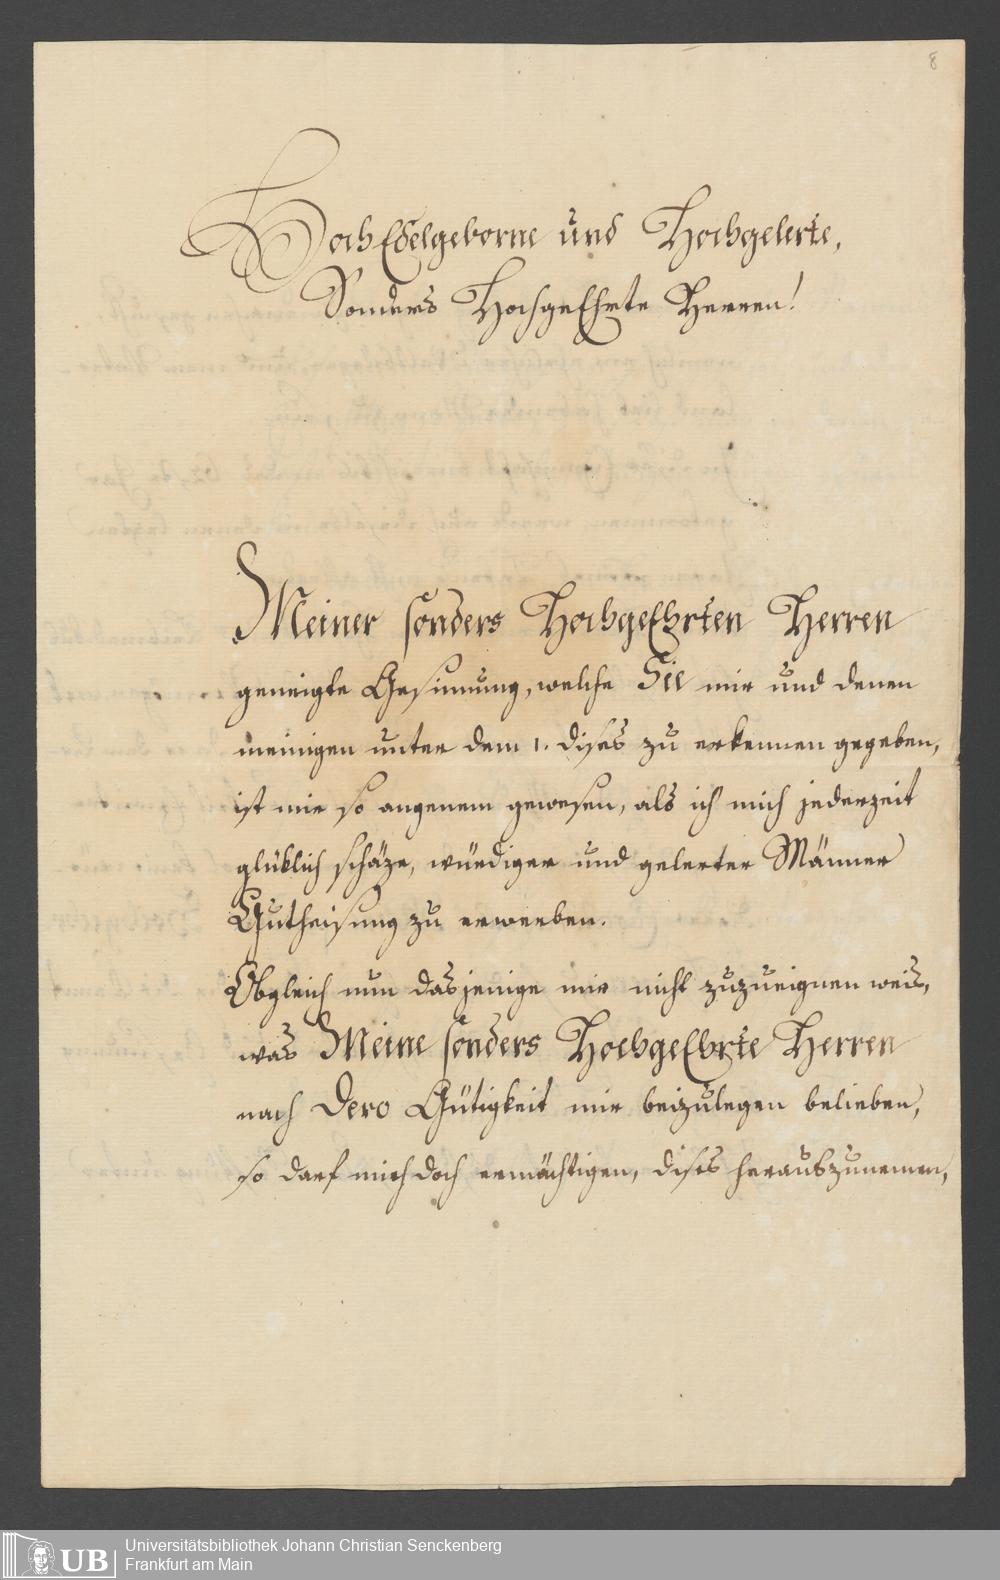 8
HochEdelgeborne und Hochgelerte,
Sonders HochgeEhrte Herren!
Meiner sonders HochgeEhrten Herren
geneigte Gesinnung, welche Sie mir und denen
meinigen unter dem 1. dises zu erkennen gegeben,
ist mir so angenem gewesen, als ich mich jederzeit
glüklich schäze, würdiger und gelerter Männer
Gutheisung zu erwerben.
Obgleich nun dasjenige mir nicht zuzueignen weis,
was Meine sonders HochgeEhrte Herren
nach Dero Gütigkeit mir beizulegen belieben,
so darf mich doch ermächtigen, dises herauszunemen,
UB
Universitätsbibliothek Johann Christian Senckenberg
Frankfurt am Main